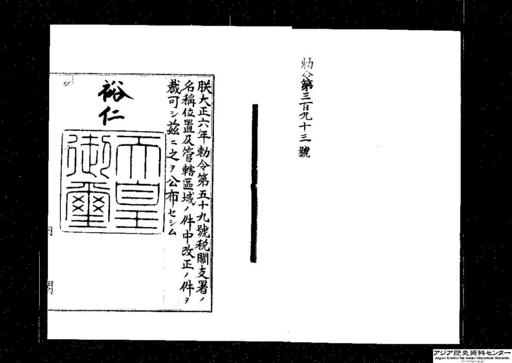 勅令第三百九十三號
朕大正六年勅令第五十九號税關支署ノ
名稱位置及管轄區域ノ件中改正ノ件ヲ
裁可シ茲ニ之ヲ公布セシム
裕仁
天皇
御璽
アジア歴史資料センター
Japan Center for Asian Historical Records